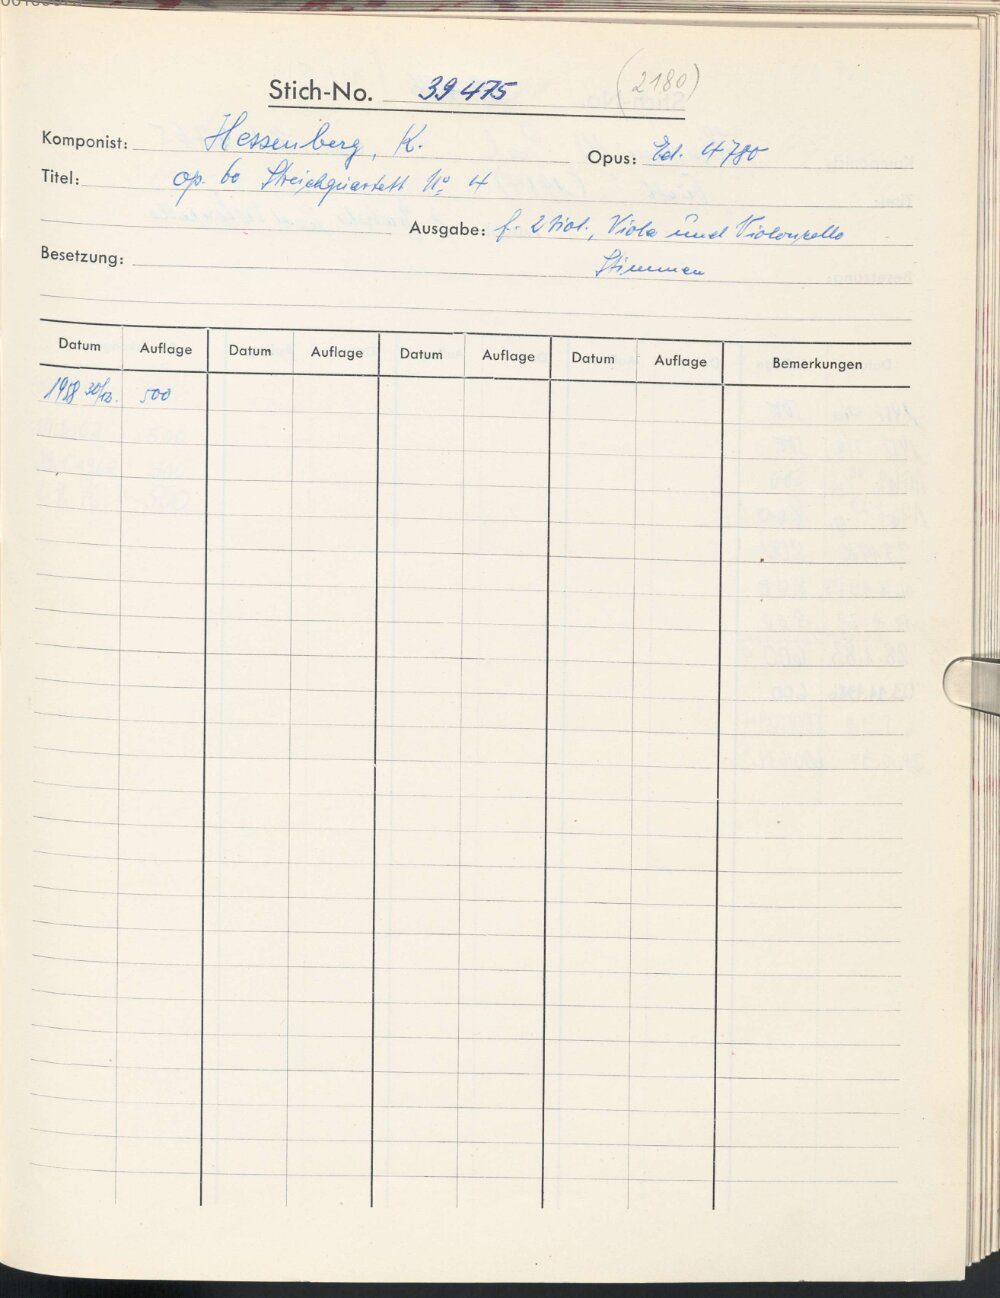 Stich-No. 39475 (2180)
Komponist: Hessenberg, K.
Opus: Ed. 4780
Titel: op. 60 Streichquartett No 4
Ausgabe: f. 2 Viol., Viola und Violoncello
Besetzung: Stimmen
Datum Auflage Datum Auflage Datum Auflage Datum Auflage Bemerkungen
1958 30/12. 500